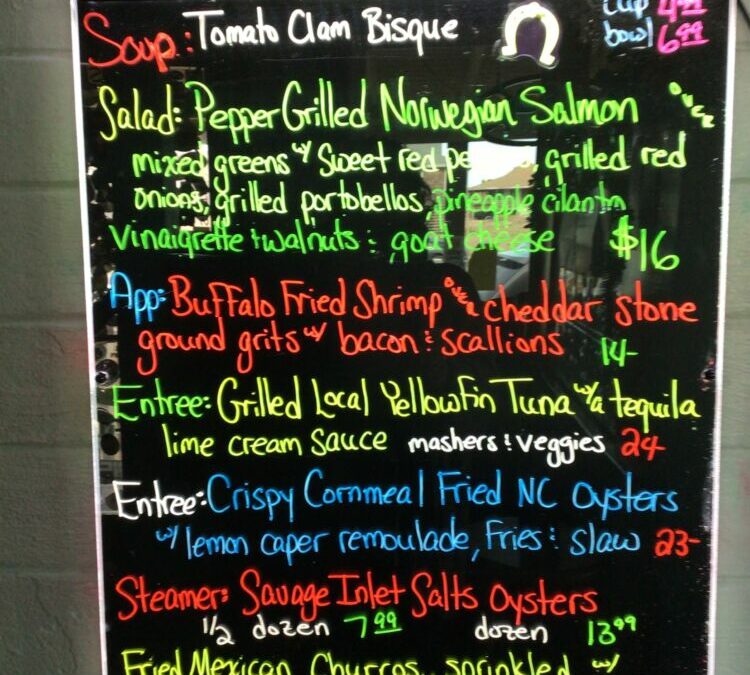 Soup: Tomato Clam Bisque
cup 4.99
bowl 6.99
Salad: Pepper Grilled Norwegian Salmon over
mixed greens w/ Sweet red peppers, grilled red
onions, grilled portobellos, pineapple cilantro
vinaigrette + walnuts & goat cheese $16
App: Buffalo Fried Shrimp over cheddar stone
ground grits w/ bacon & scallions 14-
Entree: Grilled Local Yellowfin Tuna w/a tequila
lime cream sauce mashers & veggies 24
Entree: Crispy Cornmeal Fried NC Oysters
w/ lemon caper remoulade, Fries & slaw 23-
Steamer: Savage Inlet Salts Oysters
1/2 dozen 7.99 dozen 13.99
Fried Mexican Churros sprinkled w/